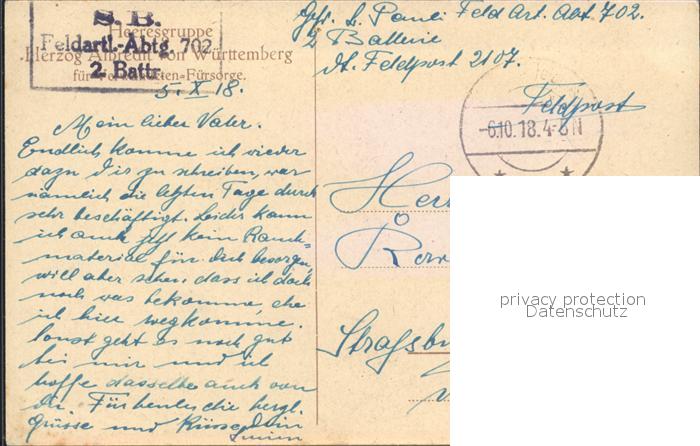 S. B.
Feldartl.-Abtg. 702
2. Battr
Heeresgruppe
Herzog Albrecht von Württemberg
für Soldaten-Fürsorge.
5. X. 18.
Mein lieber Vater.
Endlich komme ich wieder
dazu Dir zu schreiben, war
nämlich die letzten Tage durch
sehr beschäftigt. Leider kann
ich auch jetzt kein Rauch-
material für Dich besorgen,
will aber sehen, dass ich doch
noch was bekomme, ehe
ich hier wegkomme.
Sonst geht es noch gut
bei mir und ich
hoffe dasselbe auch von
Dir. Für heute die herzl.
Grüsse und Küsse Dein
Gefr. L. Pauli Feld Art. Abt. 702.
2 Batterie
Dt. Feldpost 2107.
Feldpost
-6.10.18.4-8N
Strassbu
privacy protection
Datenschutz